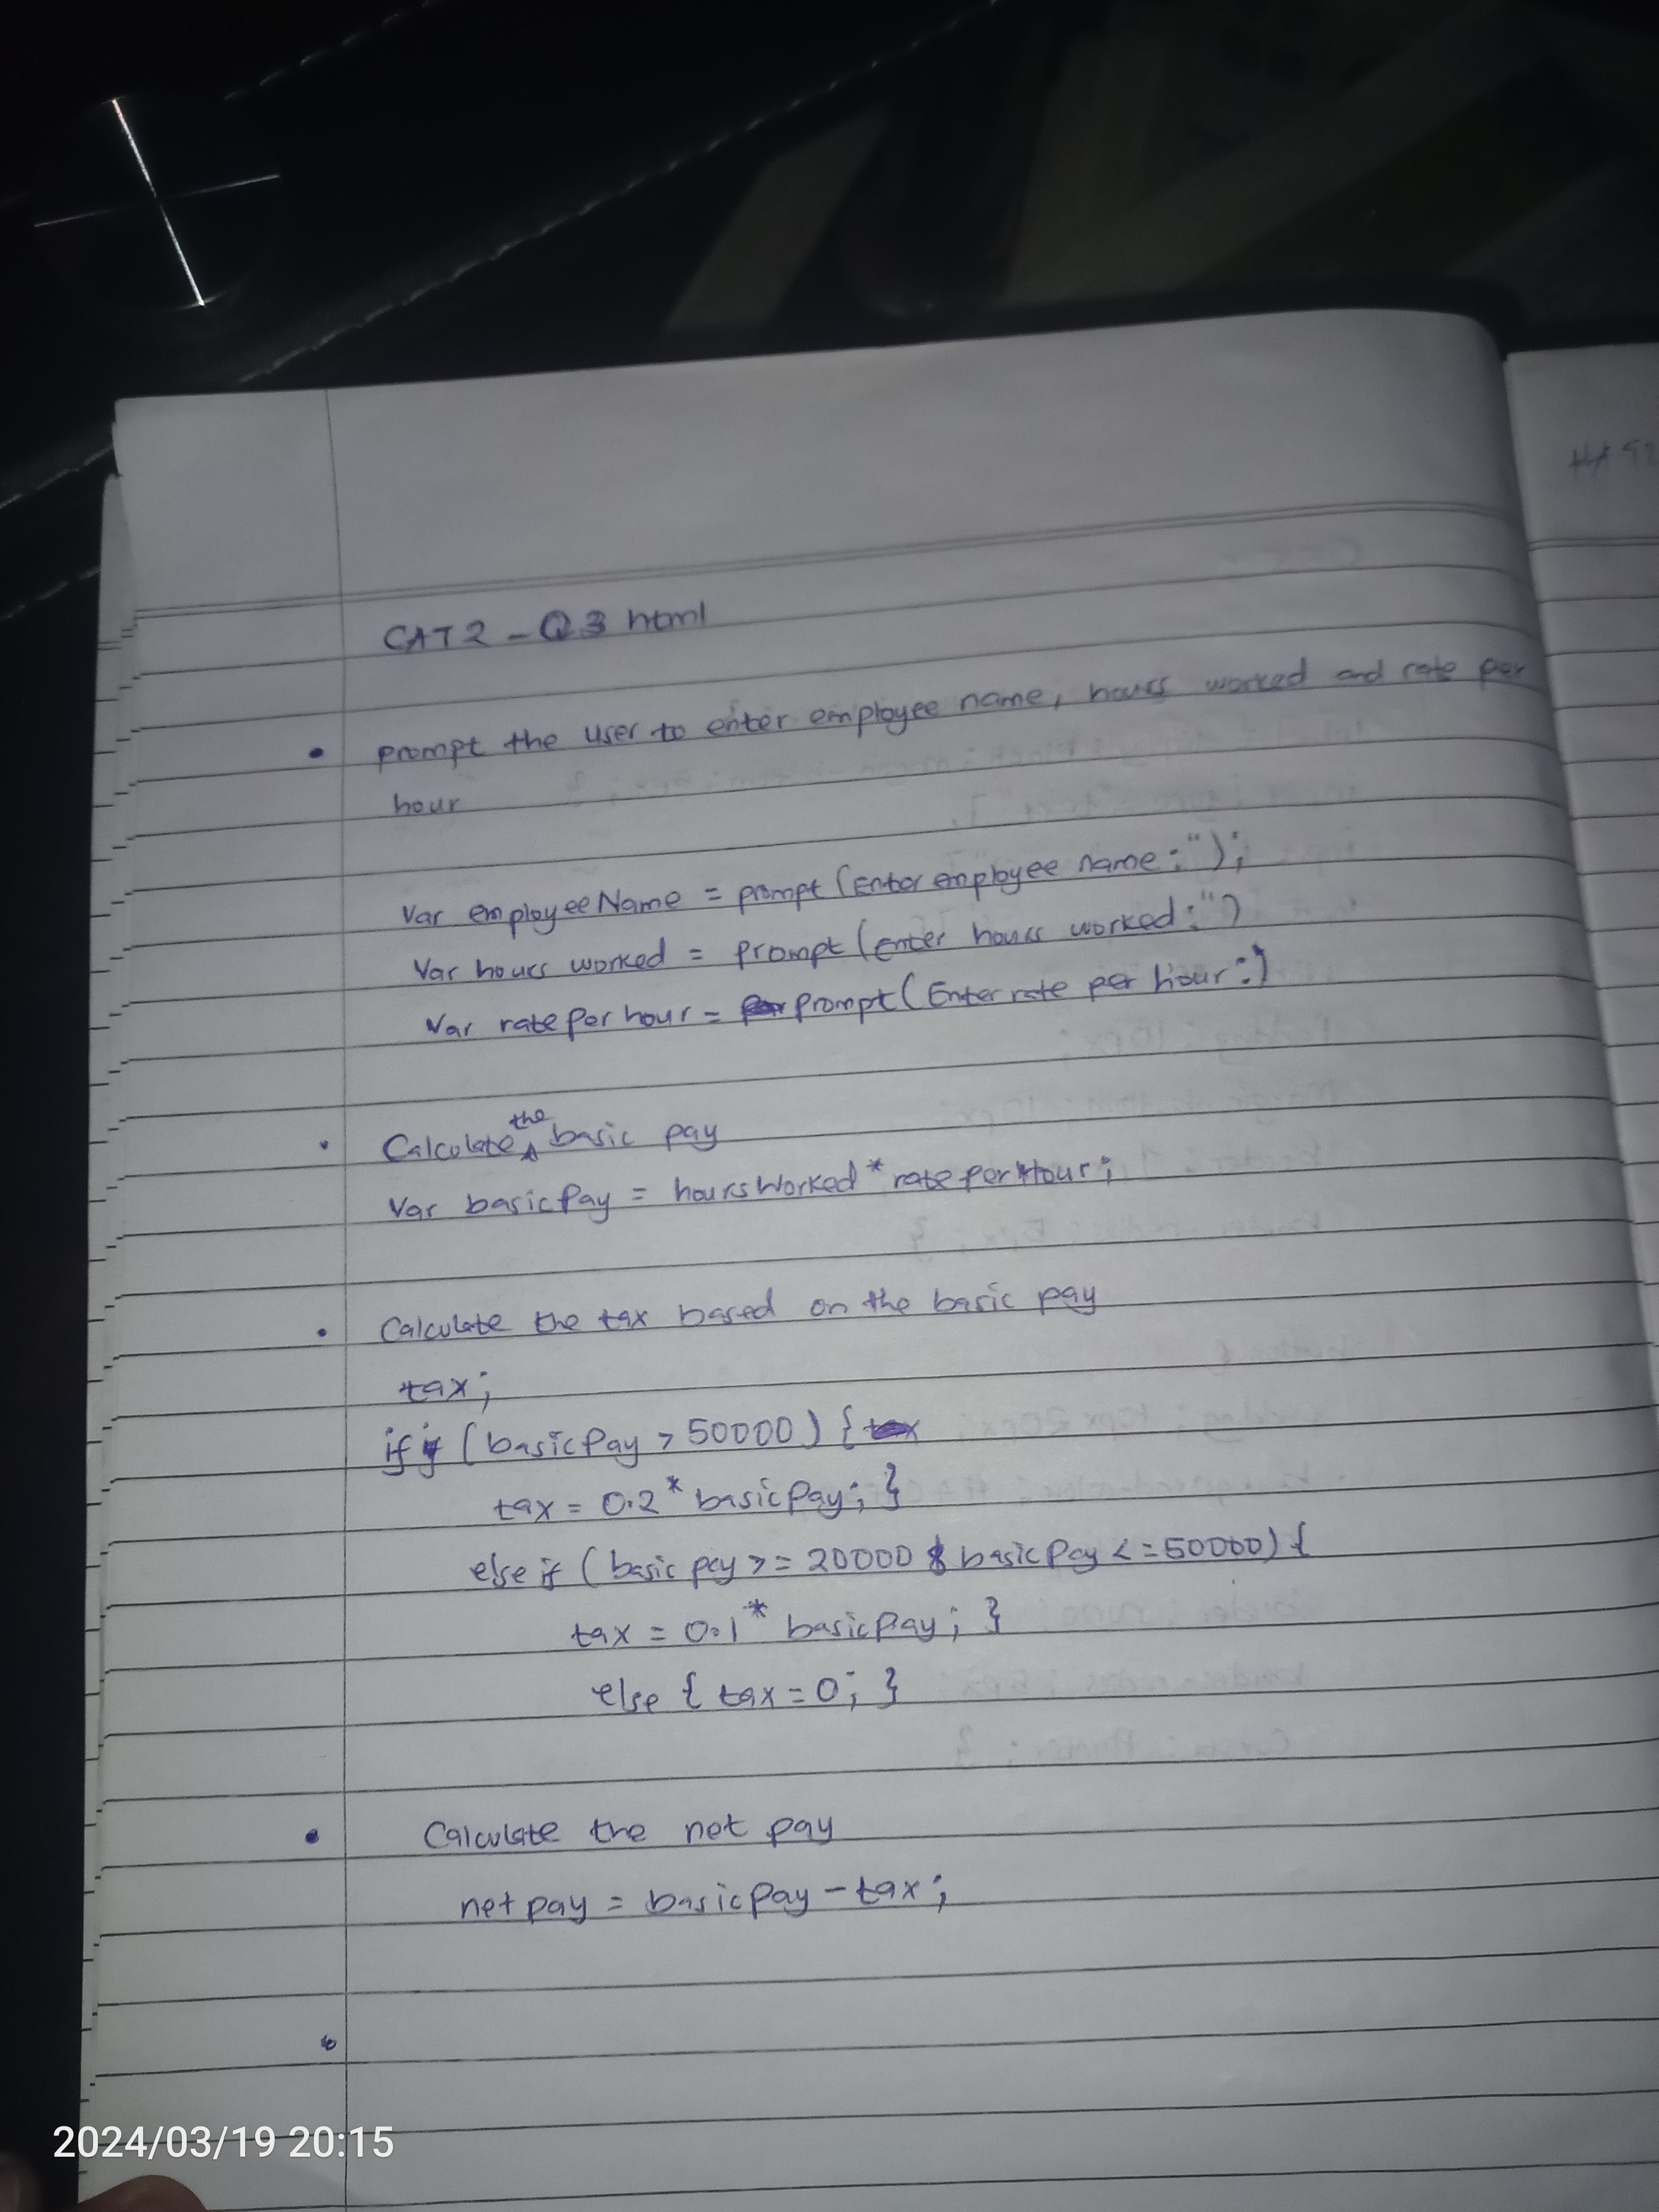 CAT 2 - Q3 html
• prompt the user to enter employee name, hours worked and rate per
hour
Var employeeName = prompt (Enter employee name:");
Var hours worked = prompt (enter hours worked:")
Var rate per hour = prompt (Enter rate per hour:)
• Calculate the basic pay
Var basicPay = hoursWorked * rate per Hour;
• Calculate the tax based on the basic pay
tax;
if (basicPay > 50000) {
tax = 0.2 * basicPay; }
else if (basic pay >= 20000 & basicPay <= 50000) {
tax = 0.1 * basicPay; }
else { tax = 0; }
• Calculate the net pay
net pay = basicPay - tax;
•
2024/03/19 20:15